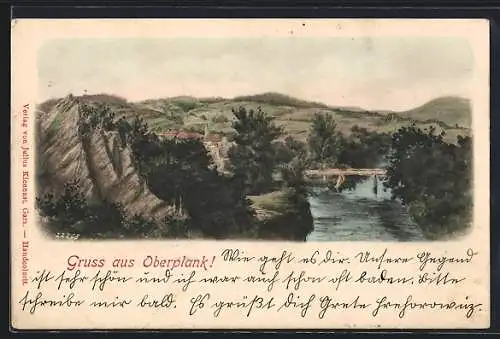 Gruss aus Oberplank! Wie geht es dir. Unsere Gegend
ist sehr schön und ich war auch schon oft baden. Bitte
schreibe mir bald. Es grüßt Dich Grete
Verlag von Julius Kienast, Gars. — Handcolorit.